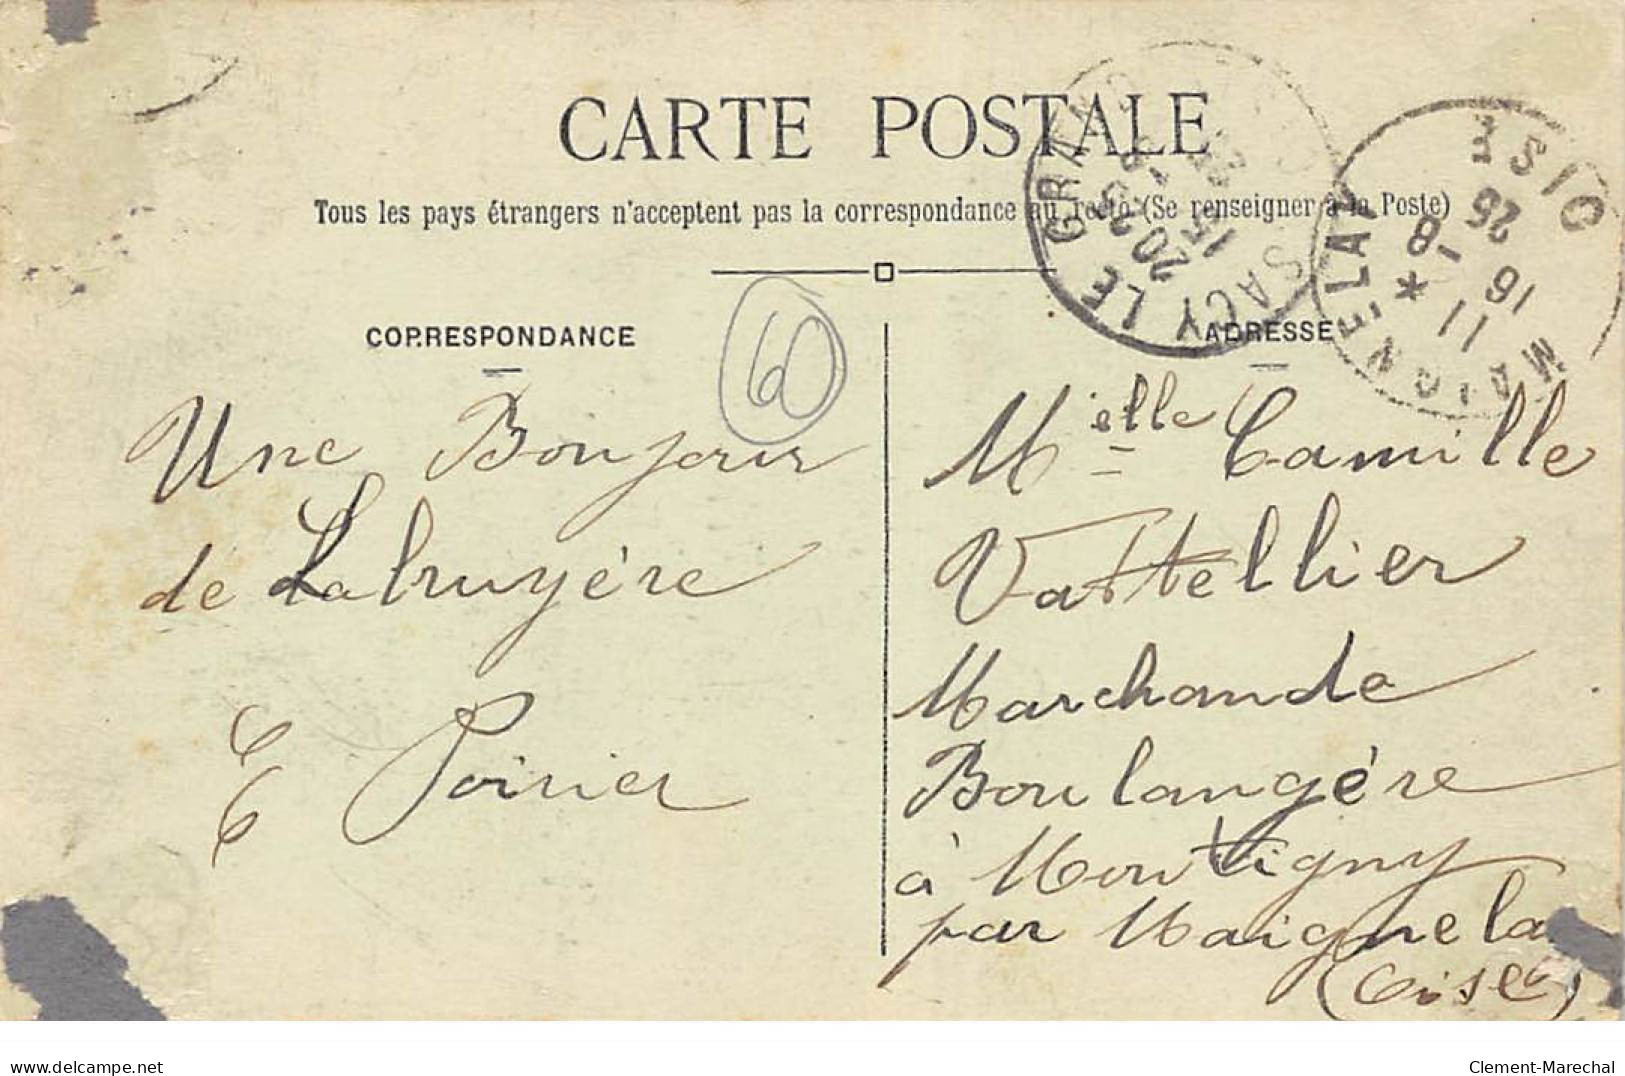 CARTE POSTALE
Tous les pays étrangers n'acceptent pas la correspondance au recto (Se renseigner à la Poste)
CORRESPONDANCE
ADRESSE
60
SACY LE GRAND
15
20
MAIGNELAY
OISE
11
16
-8
25
*
Une Bonjour
de Labruyére
E Poirier
Melle Camille
Vattellier
Marchande
Boulangére
à Montigny
par Maignela
(Oise)
www.delcampe.net
Clement-Marechal